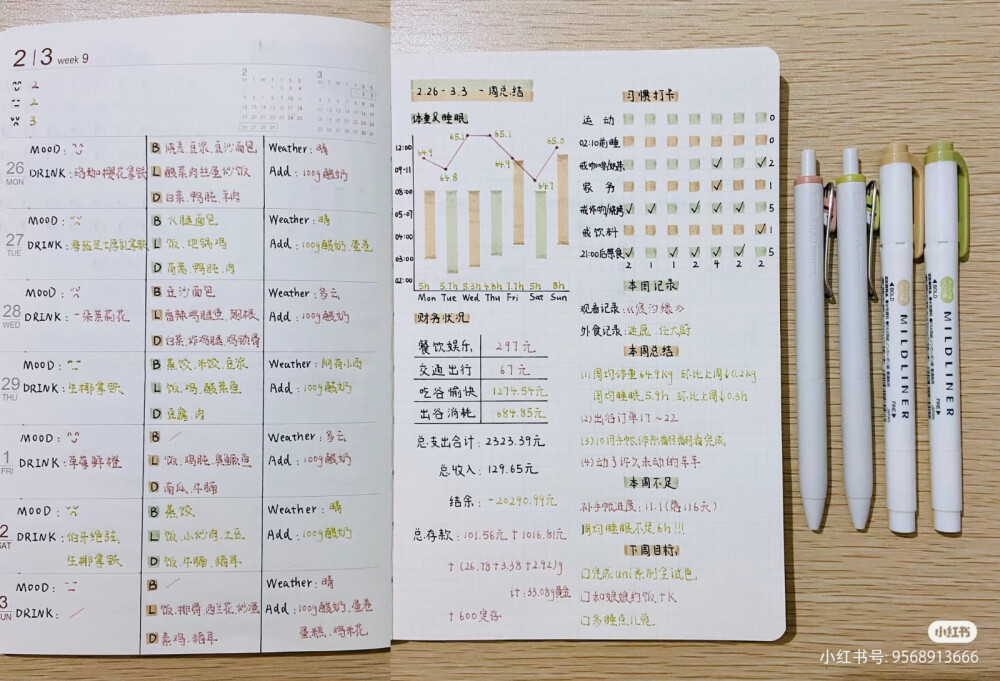 2|3 week 9
2
2
3
26 MON
MOOD:
DRINK:
B 烧麦.豆浆.豆沙面包
L 酸菜肉丝蛋炒饭
D 白菜.鸭肫.羊肉
Weather:晴
Add:100g酸奶
27 TUE
MOOD:
DRINK:
B 火腿面包
L 饭.地锅鸡
D 茼蒿.鸭肫.肉
Weather:晴
Add:100g酸奶.蛋卷
28 WED
MOOD:
DRINK:一朵茉莉花
B 豆沙面包
L 香辣鸡腿堡.翅根
D 白菜.炸鸡腿.鸡锁骨
Weather:多云
Add:100g酸奶
29 THU
MOOD:
DRINK:生椰拿铁
B 蒸饺.米饺.豆浆
L 饭.鸡.酸菜鱼
D 豆腐.肉
Weather:阴有小雨
Add:100g酸奶
1 FRI
MOOD:
DRINK:草莓鲜橙
B /
L 饭.鸡肫.臭鳜鱼
D 南瓜.牛腩
Weather:多云
Add:100g酸奶
2 SAT
MOOD:
DRINK:伯牙绝弦.
生椰拿铁
B 蒸饺
L 饭.小炒肉.土豆
D 饭.牛腩.猪耳
Weather:晴
Add:100g酸奶
3 SUN
MOOD:
DRINK: /
B /
L 饭.排骨.西兰花.炒蛋
D 素鸡.猪耳
Weather:晴
Add:100g酸奶.蛋卷
蛋糕.鸡米花
2.26-3.3 一周总结
体重&睡眠
64.9 64.8 65.1 65.1 64.9 64.7 65.0
12:00
09-11
05-07
04:00
03:00
02:00
5h 5.7h 5.5h 4.8h 7.7h 5h 8h
Mon Tue Wed Thu Fri Sat Sun
财务状况
餐饮娱乐 297元
交通出行 67元
吃谷愉快 1274.54元
出谷消耗 684.85元
总支出合计:2323.39元
总收入:129.65元
结余:-20290.99元
总存款:101.56元 ↑1016.81元
↑(26.78+3.38+2.92)g
计:33.08g黄金
↑600定存
习惯打卡
运动 0
02:10前睡 0
戒咖啡奶茶 2
家务 1
戒炸物/烧烤 5
戒饮料 1
21:00后禁食 5
2 1 1 2 4 2 2
本周记录
观看记录:
外食记录:
本周总结
(1)周均体重64.9kg 环比上周↓0.2kg
周均睡眠5.9h.环比上周↓0.3h
(2)出谷订单17~22
(3)10月手帐体系翻翻看完成
(4)动了许久未动的车车
本周不足
补手帐进度:11.1(落116天)
周均睡眠不足6h!!!
下周目标
□完成uni系列全试色
□和娘娘约饭+K
□多睡点儿觉
BOLD
MILDLINER
FINE
BOLD
MILDLINER
FINE
小红书
小红书号: 9568913666